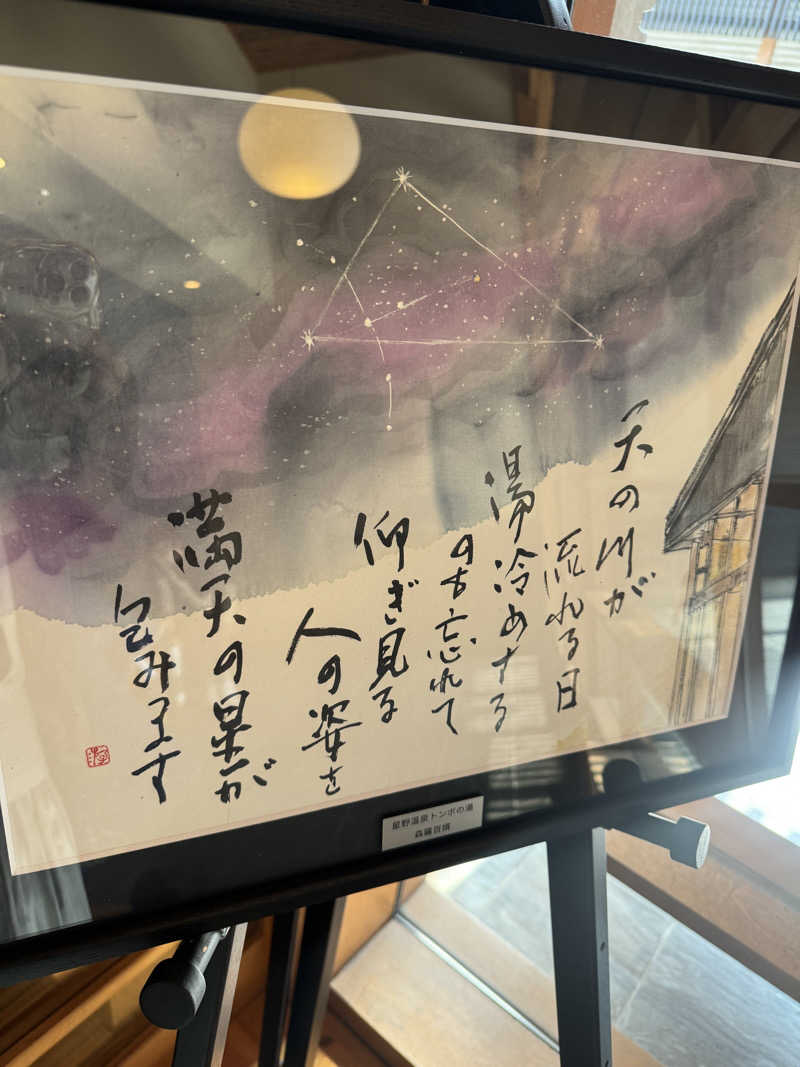 天の川が
流れる日
湯冷めする
のも忘れて
仰ぎ見る
人の姿を
満天の星が
包みます
星野温泉トンボの湯